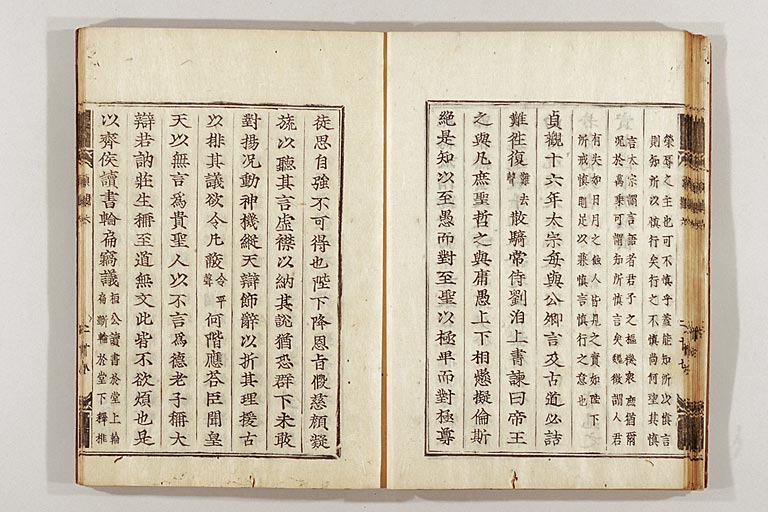 榮辱之主也可不慎乎蓋能知所以慎言
則知所以慎行矣行之不慎尚何望其慎
言太宗謂言語者君子之樞機衆庶猶爾
况於萬乘可謂知所慎言矣魏徵謂人君
有失如日月之蝕人皆見之實如陛下
所戒慎則足以兼慎言慎行之意也
貞觀十六年太宗每與公卿言及古道必詰
難往復難去聲散騎常侍劉洎上書諫曰帝王
之與凡庶聖哲之與庸愚上下相懸擬倫斯
絕是知以至愚而對至聖以極卑而對極尊
徒思自強不可得也陛下降恩旨假慈顏凝
旒以聽其言虛襟以納其說猶恐群下未敢
對揚况動神機縱天辯飾辭以折其理援古
以排其議欲令凡蔽令平聲何階應荅臣聞皇
天以無言為貴聖人以不言為德老子稱大
辯若訥莊生稱至道無文此皆不欲煩也是
以齊侯讀書輪扁竊議桓公讀書於堂上輪扁斲輪於堂下釋椎